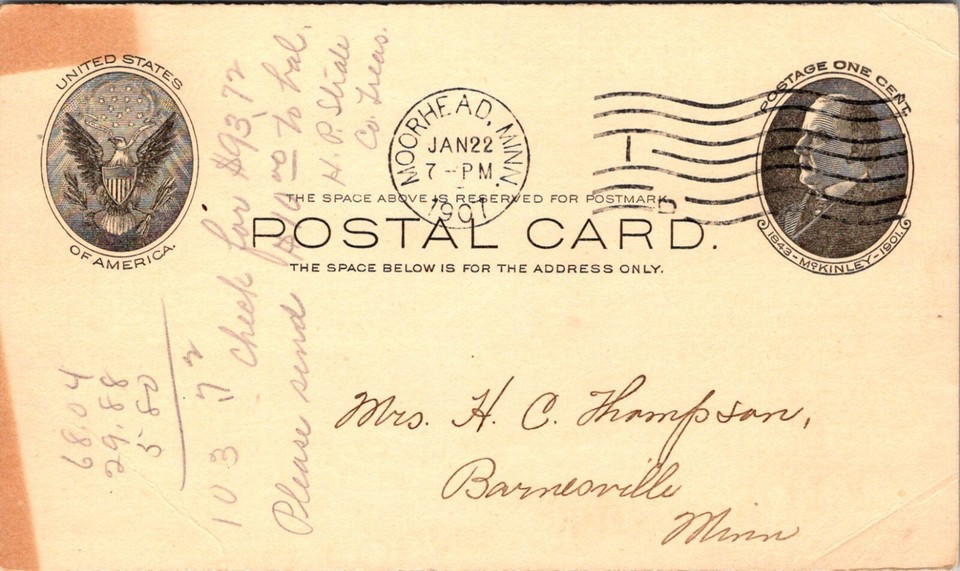 UNITED STATES
OF AMERICA.
MOORHEAD, MINN.
JAN 22
7 - PM
1907
1
D
POSTAGE ONE CENT.
1843 - McKINLEY - 1901.
THE SPACE ABOVE IS RESERVED FOR POSTMARK.
POSTAL CARD.
THE SPACE BELOW IS FOR THE ADDRESS ONLY.
Mrs. H. C. Thompson,
Barnesville
Minn
68.04
29.88
5 80
103 72
Check for $93.72
Please send $10 00 to bal.
H. P.
Co. Treas.